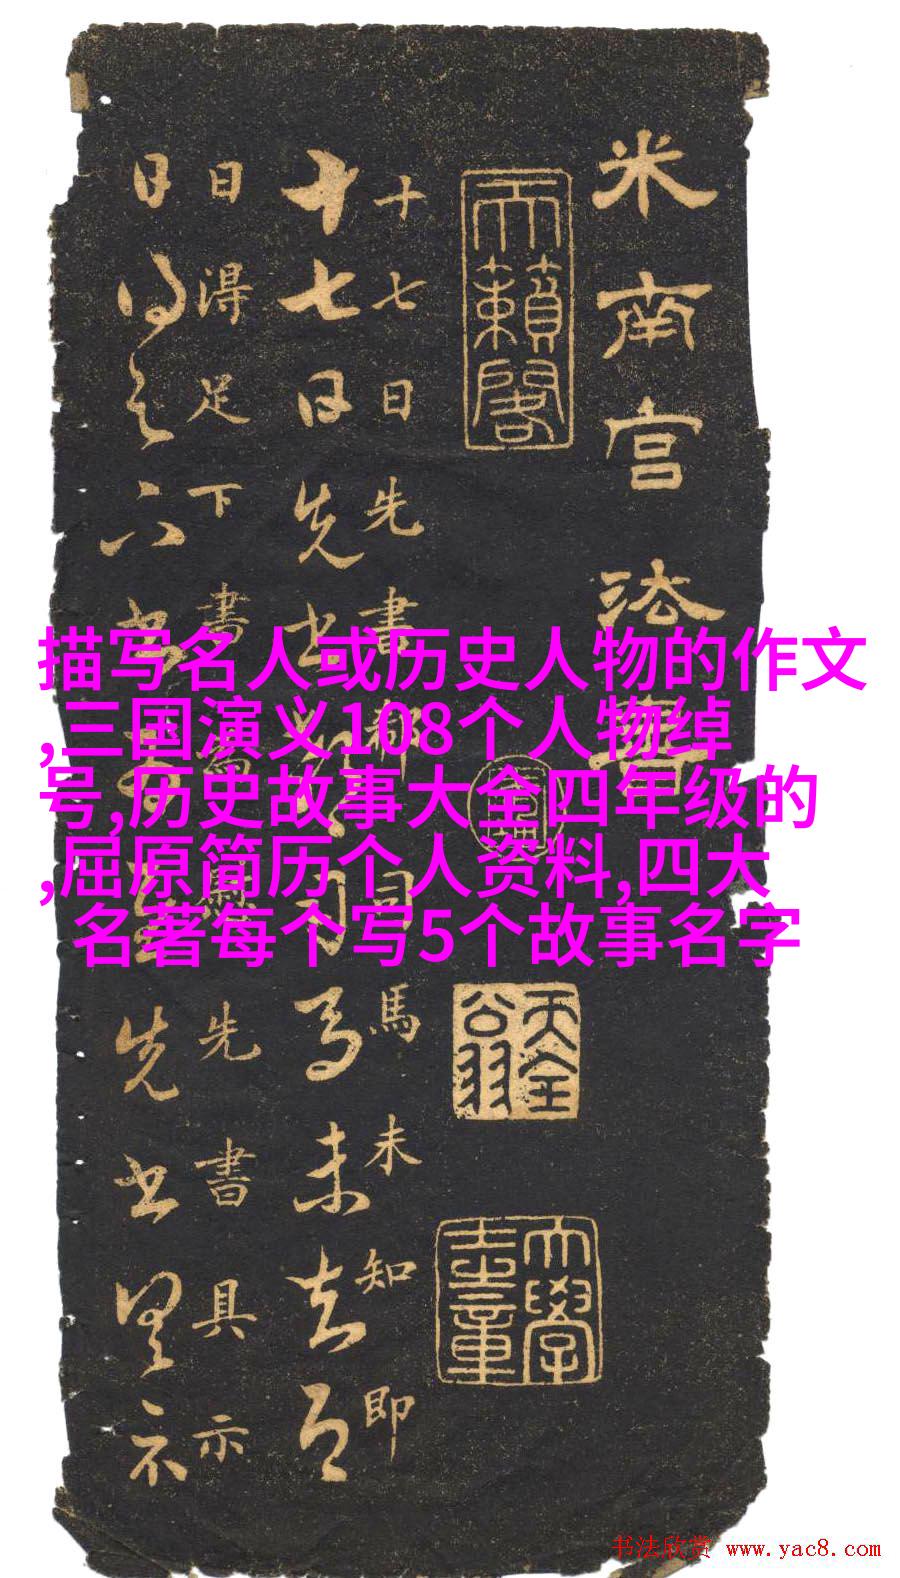 米南宫法書
天籟閣
天全翁
十七日先書郗司馬未知即
十七日先書郗司馬未去即
日得足下書為慰先書具示
描写名人或历史人物的作文
,三国演义108个人物绰
号,历史故事大全四年级的
,屈原简历个人资料,四大
名著每个写5个故事名字
书法欣赏 www.yac8.com